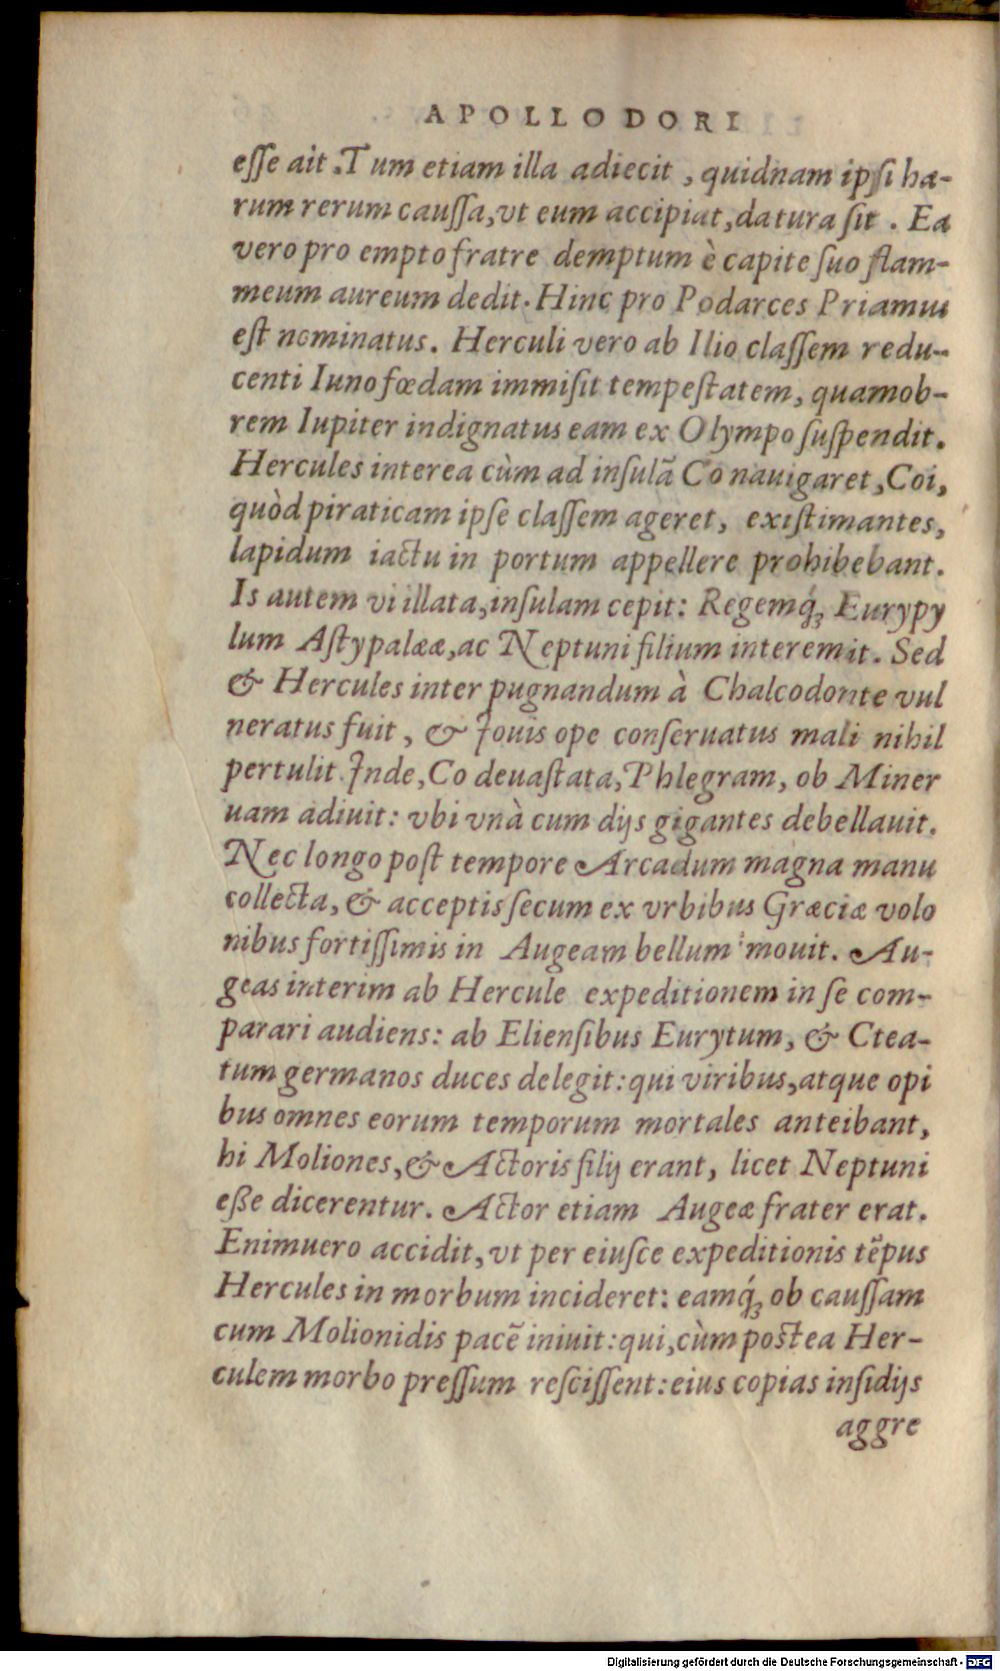 APOLLODORI
esse ait. Tum etiam illa adiecit, quidnam ipsi ha-
rum rerum caussa, vt eum accipiat, datura sit. Ea
vero pro empto fratre demptum è capite suo flam-
meum aureum dedit. Hinc pro Podarces Priamus
est nominatus. Herculi vero ab Ilio classem redu-
centi Iuno fœdam immisit tempestatem, quamob-
rem Iupiter indignatus eam ex Olympo suspendit.
Hercules interea cùm ad insulã Co nauigaret, Coi,
quòd piraticam ipse classem ageret, existimantes,
lapidum iactu in portum appellere prohibebant.
Is autem vi illata, insulam cepit: Regemq́; Eurypy
lum Astypalææ, ac Neptuni filium interemit. Sed
& Hercules inter pugnandum à Chalcodonte vul
neratus fuit, & Iouis ope conseruatus mali nihil
pertulit. Inde, Co deuastata, Phlegram, ob Miner
uam adiuit: vbi vnà cum dijs gigantes debellauit.
Nec longo post tempore Arcadum magna manu
collecta, & acceptis secum ex vrbibus Græciæ volo
nibus fortissimis in Augeam bellum mouit. Au-
geas interim ab Hercule expeditionem in se com-
parari audiens: ab Eliensibus Eurytum, & Ctea-
tum germanos duces delegit: qui viribus, atque opi
bus omnes eorum temporum mortales anteibant,
hi Moliones, & Actoris filij erant, licet Neptuni
eße dicerentur. Actor etiam Augeæ frater erat.
Enimuero accidit, vt per eiusce expeditionis tẽpus
Hercules in morbum incideret: eamq́; ob caussam
cum Molionidis pacẽ iniuit: qui, cùm postea Her-
culem morbo pressum rescissent: eius copias insidijs
aggre
Digitalisierung gefördert durch die Deutsche Forschungsgemeinschaft - DFG